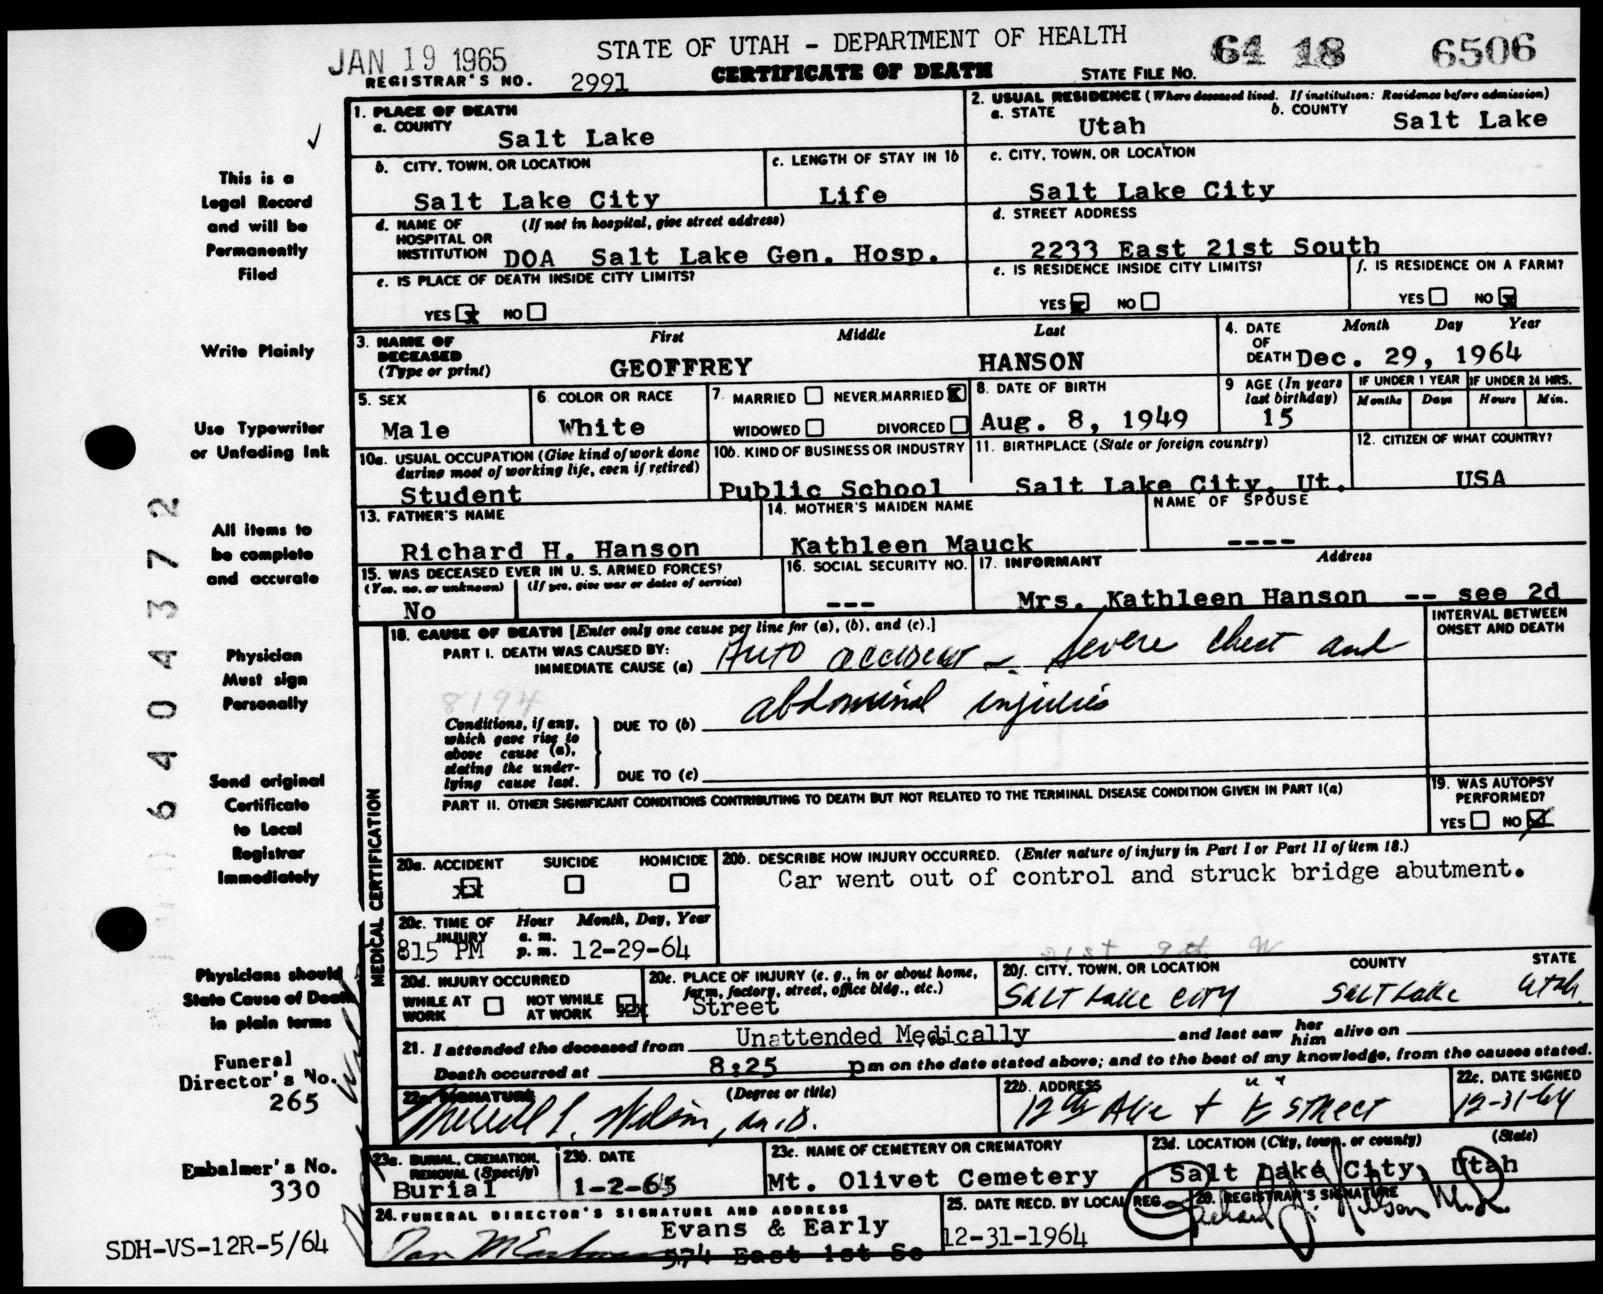 JAN 19 1965
STATE OF UTAH - DEPARTMENT OF HEALTH
64 18 6506
REGISTRAR'S NO. 2991
CERTIFICATE OF DEATH
STATE FILE NO.
1. PLACE OF DEATH
a. COUNTY
Salt Lake
2. USUAL RESIDENCE (Where deceased lived. If institution: Residence before admission)
a. STATE
Utah
b. COUNTY
Salt Lake
b. CITY, TOWN, OR LOCATION
Salt Lake City
c. LENGTH OF STAY IN 1b
Life
c. CITY, TOWN, OR LOCATION
Salt Lake City
d. NAME OF HOSPITAL OR INSTITUTION
(If not in hospital, give street address)
DOA Salt Lake Gen. Hosp.
d. STREET ADDRESS
2233 East 21st South
e. IS PLACE OF DEATH INSIDE CITY LIMITS?
YES x NO
e. IS RESIDENCE INSIDE CITY LIMITS?
YES x NO
f. IS RESIDENCE ON A FARM?
YES NO x
3. NAME OF DECEASED (Type or print)
First Middle Last
GEOFFREY HANSON
4. DATE OF DEATH
Month Day Year
Dec. 29, 1964
5. SEX
Male
6. COLOR OR RACE
White
7. MARRIED NEVER MARRIED x
WIDOWED DIVORCED
8. DATE OF BIRTH
Aug. 8, 1949
9 AGE (In years last birthday)
15
IF UNDER 1 YEAR
Months Days
IF UNDER 24 HRS.
Hours Min.
10a. USUAL OCCUPATION (Give kind of work done during most of working life, even if retired)
Student
10b. KIND OF BUSINESS OR INDUSTRY
Public School
11. BIRTHPLACE (State or foreign country)
Salt Lake City, Ut.
12. CITIZEN OF WHAT COUNTRY?
USA
13. FATHER'S NAME
Richard H. Hanson
14. MOTHER'S MAIDEN NAME
Kathleen Mauck
NAME OF SPOUSE
----
15. WAS DECEASED EVER IN U. S. ARMED FORCES?
(Yes, no, or unknown) (If yes, give war or dates of service)
No
16. SOCIAL SECURITY NO.
---
17. INFORMANT Address
Mrs. Kathleen Hanson -- see 2d
18. CAUSE OF DEATH [Enter only one cause per line for (a), (b), and (c).]
INTERVAL BETWEEN ONSET AND DEATH
PART I. DEATH WAS CAUSED BY:
IMMEDIATE CAUSE (a) Auto accident - Severe chest and
8194
abdominal injuries
Conditions, if any, which gave rise to above cause (a), stating the underlying cause last.
DUE TO (b)
DUE TO (c)
PART II. OTHER SIGNIFICANT CONDITIONS CONTRIBUTING TO DEATH BUT NOT RELATED TO THE TERMINAL DISEASE CONDITION GIVEN IN PART I(a)
19. WAS AUTOPSY PERFORMED?
YES NO x
MEDICAL CERTIFICATION
20a. ACCIDENT SUICIDE HOMICIDE
20b. DESCRIBE HOW INJURY OCCURRED. (Enter nature of injury in Part I or Part II of item 18.)
Car went out of control and struck bridge abutment.
20c. TIME OF INJURY
Hour Month, Day, Year
a. m.
p. m.
815 PM 12-29-64
21st 9th W
20d. INJURY OCCURRED
WHILE AT WORK NOT WHILE AT WORK
20e. PLACE OF INJURY (e. g., in or about home, farm, factory, street, office bldg., etc.)
Street
20f. CITY, TOWN, OR LOCATION COUNTY STATE
Salt Lake City Salt Lake Utah
21. I attended the deceased from Unattended Medically and last saw her him alive on
Death occurred at 8:25 pm on the date stated above; and to the best of my knowledge, from the causes stated.
22a. SIGNATURE (Degree or title)
22b. ADDRESS
12th Ave + E Street
22c. DATE SIGNED
12-31-64
23a. BURIAL, CREMATION, REMOVAL (Specify)
Burial
23b. DATE
1-2-65
23c. NAME OF CEMETERY OR CREMATORY
Mt. Olivet Cemetery
23d. LOCATION (City, town, or county) (State)
Salt Lake City, Utah
24. FUNERAL DIRECTOR'S SIGNATURE AND ADDRESS
Evans & Early
574 East 1st So
25. DATE RECD. BY LOCAL REG.
12-31-1964
26. REGISTRAR'S SIGNATURE
This is a
Legal Record
and will be
Permanently
Filed
Write Plainly
Use Typewriter
or Unfading Ink
All items to
be complete
and accurate
Physician
Must sign
Personally
Send original
Certificate
to Local
Registrar
Immediately
Physicians should
State Cause of Death
in plain terms
Funeral
Director's No.
265
Embalmer's No.
330
SDH-VS-12R-5/64